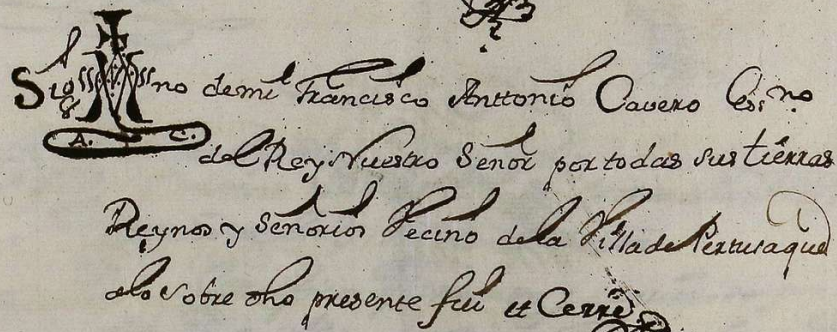 Sig no de mi Francisco Anttonio Cavero Ess.no
A. C.
del Rey Nuestro Señor por todas sus tierras
Reynos y Señorios Vecino de la Villa de Pertusa que
a lo sobre dho presente fui et Cerré